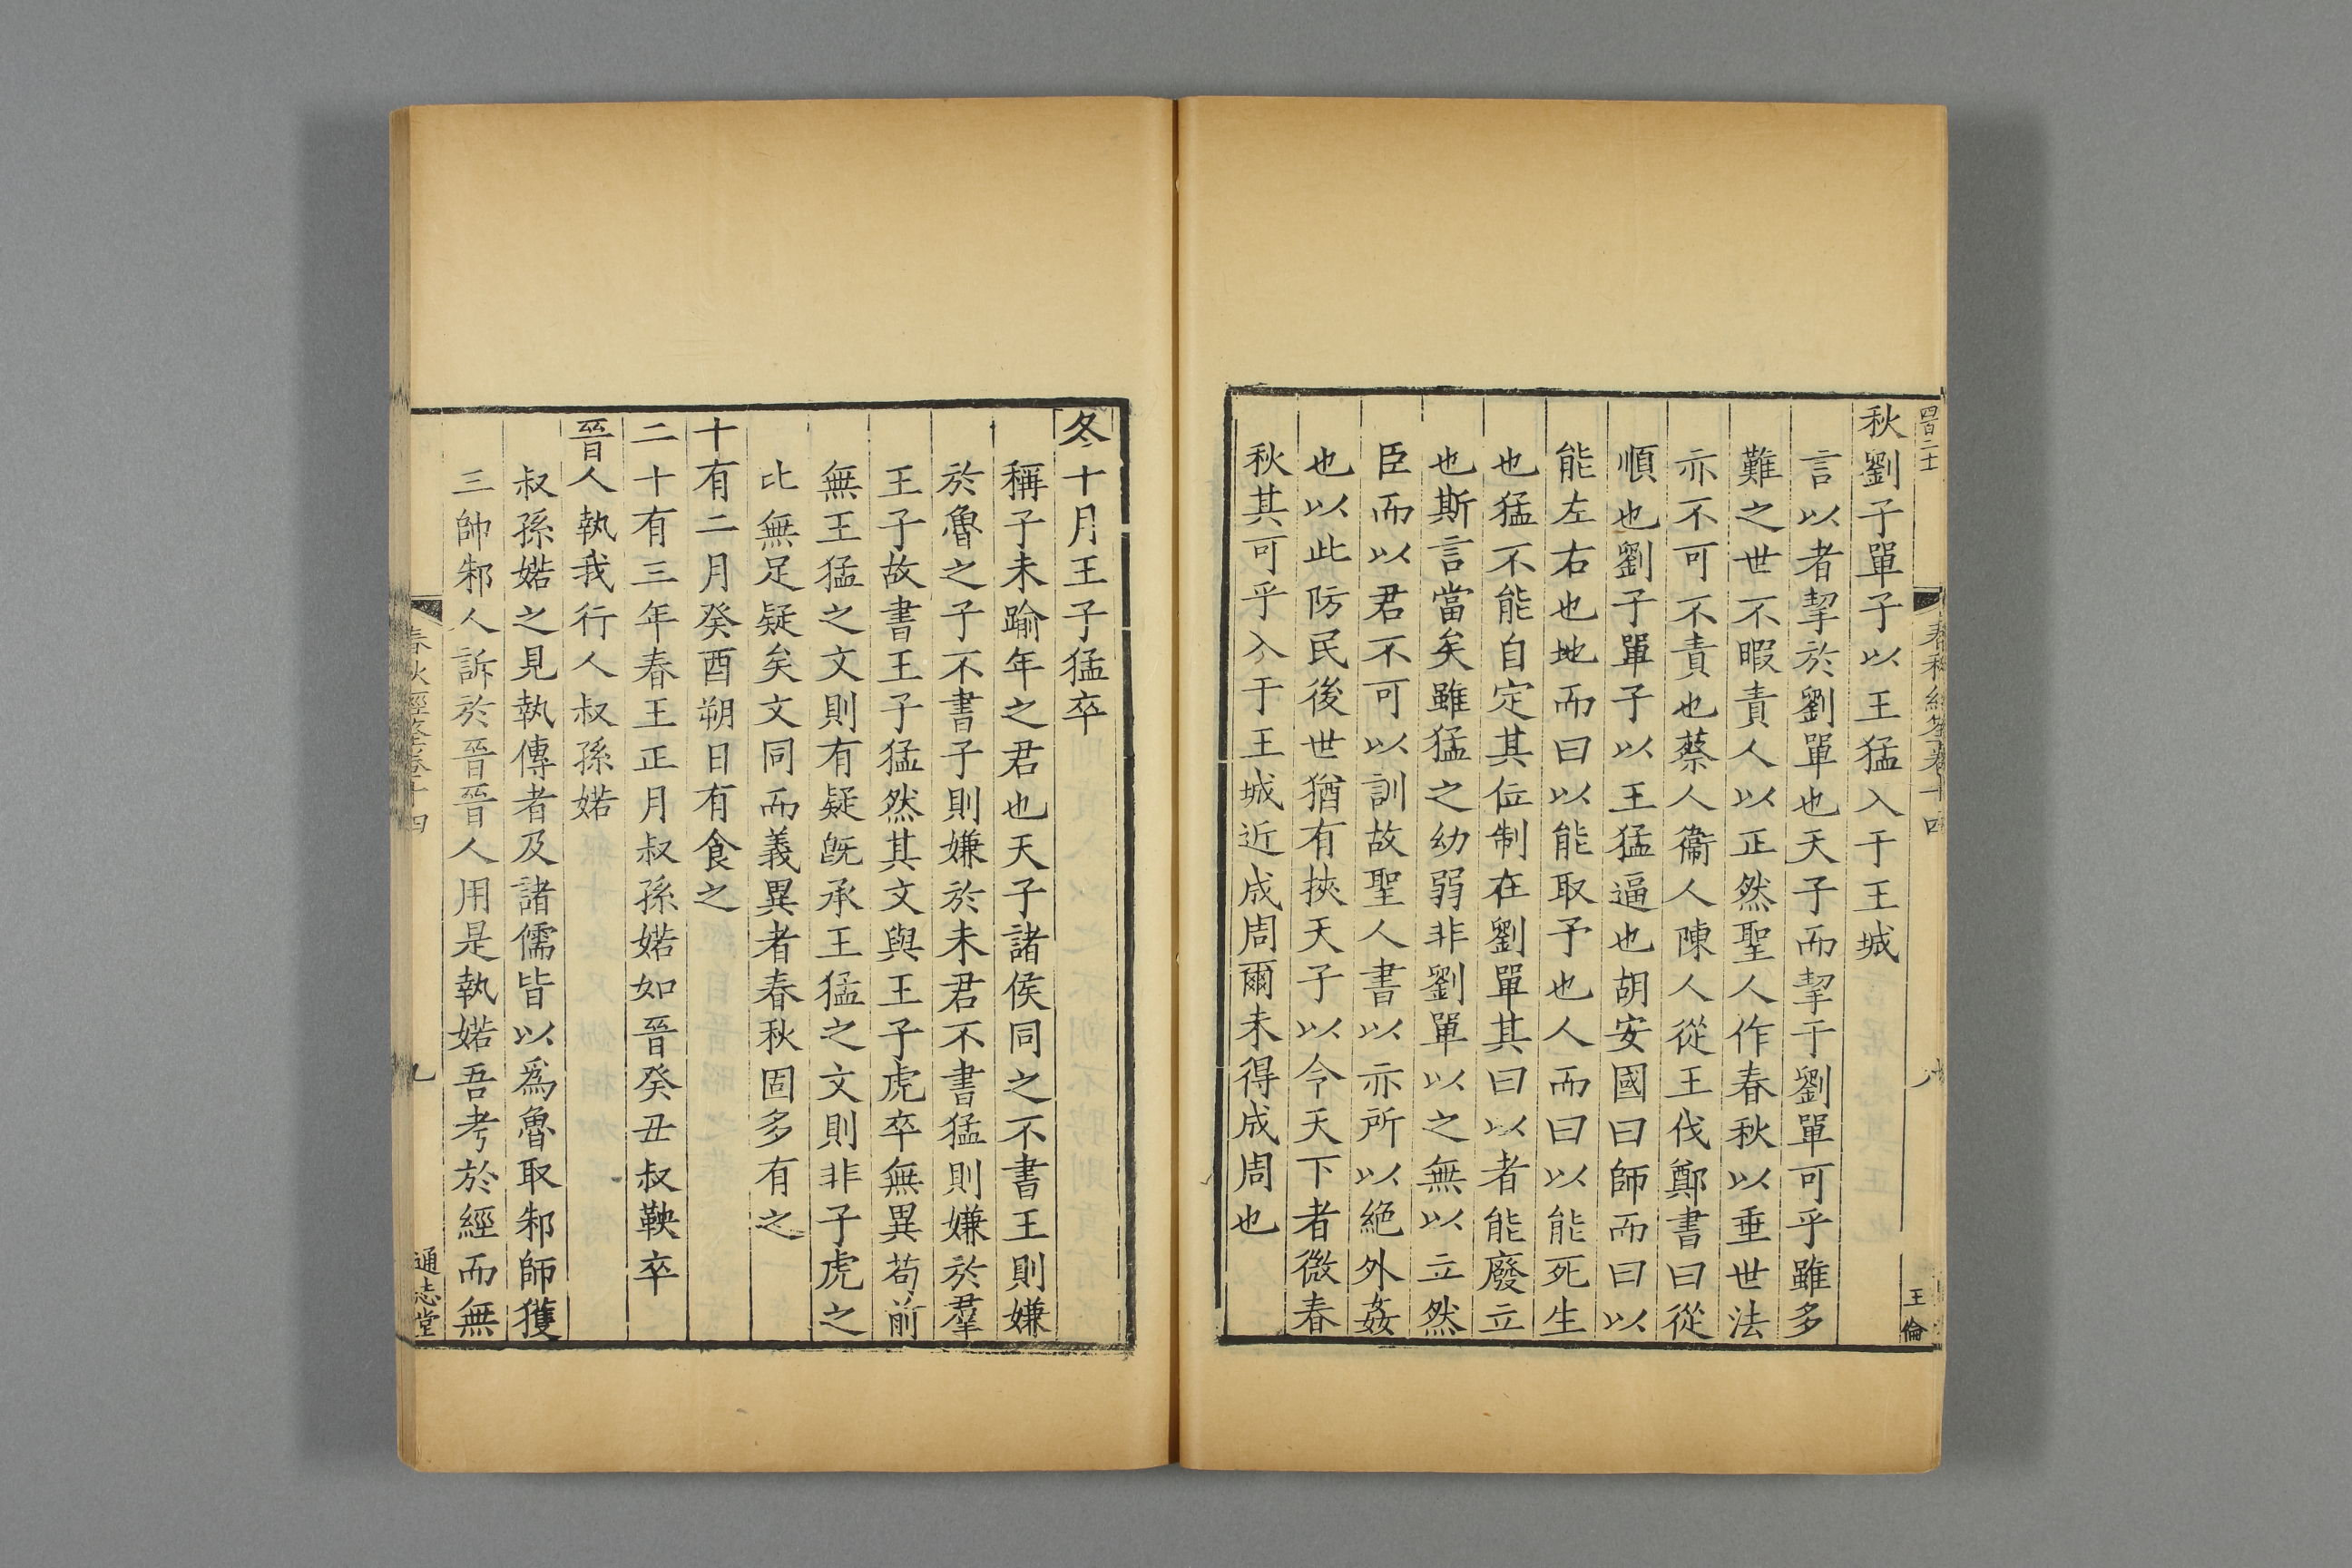 秋劉子單子以王猛入于王城
言以者挈於劉單也天子而挈于劉單可乎雖多
難之世不暇責人以正然聖人作春秋以垂世法
亦不可不責也蔡人衞人陳人從王伐鄭書曰從
順也劉子單子以王猛逼也胡安國曰師而曰以
能左右也地而曰以能取予也人而曰以能死生
也猛不能自定其位制在劉單其曰以者能廢立
也斯言當矣雖猛之幼弱非劉單以之無以立然
臣而以君不可以訓故聖人書以亦所以絕外姦
也以此防民後世猶有挾天子以令天下者微春
秋其可乎入于王城近成周爾未得成周也
王倫
冬十月王子猛卒
稱子未踰年之君也天子諸侯同之不書王則嫌
於魯之子不書子則嫌於未君不書猛則嫌於羣
王子故書王子猛然其文與王子虎卒無異苟前
無王猛之文則有疑旣承王猛之文則非子虎之
比無足疑矣文同而義異者春秋固多有之
十有二月癸酉朔日有食之
二十有三年春王正月叔孫婼如晉癸丑叔鞅卒
晉人執我行人叔孫婼
叔孫婼之見執傳者及諸儒皆以爲魯取邾師獲
三帥邾人訴於晉晉人用是執婼吾考於經而無
春秋經筌卷十四
九
通志堂